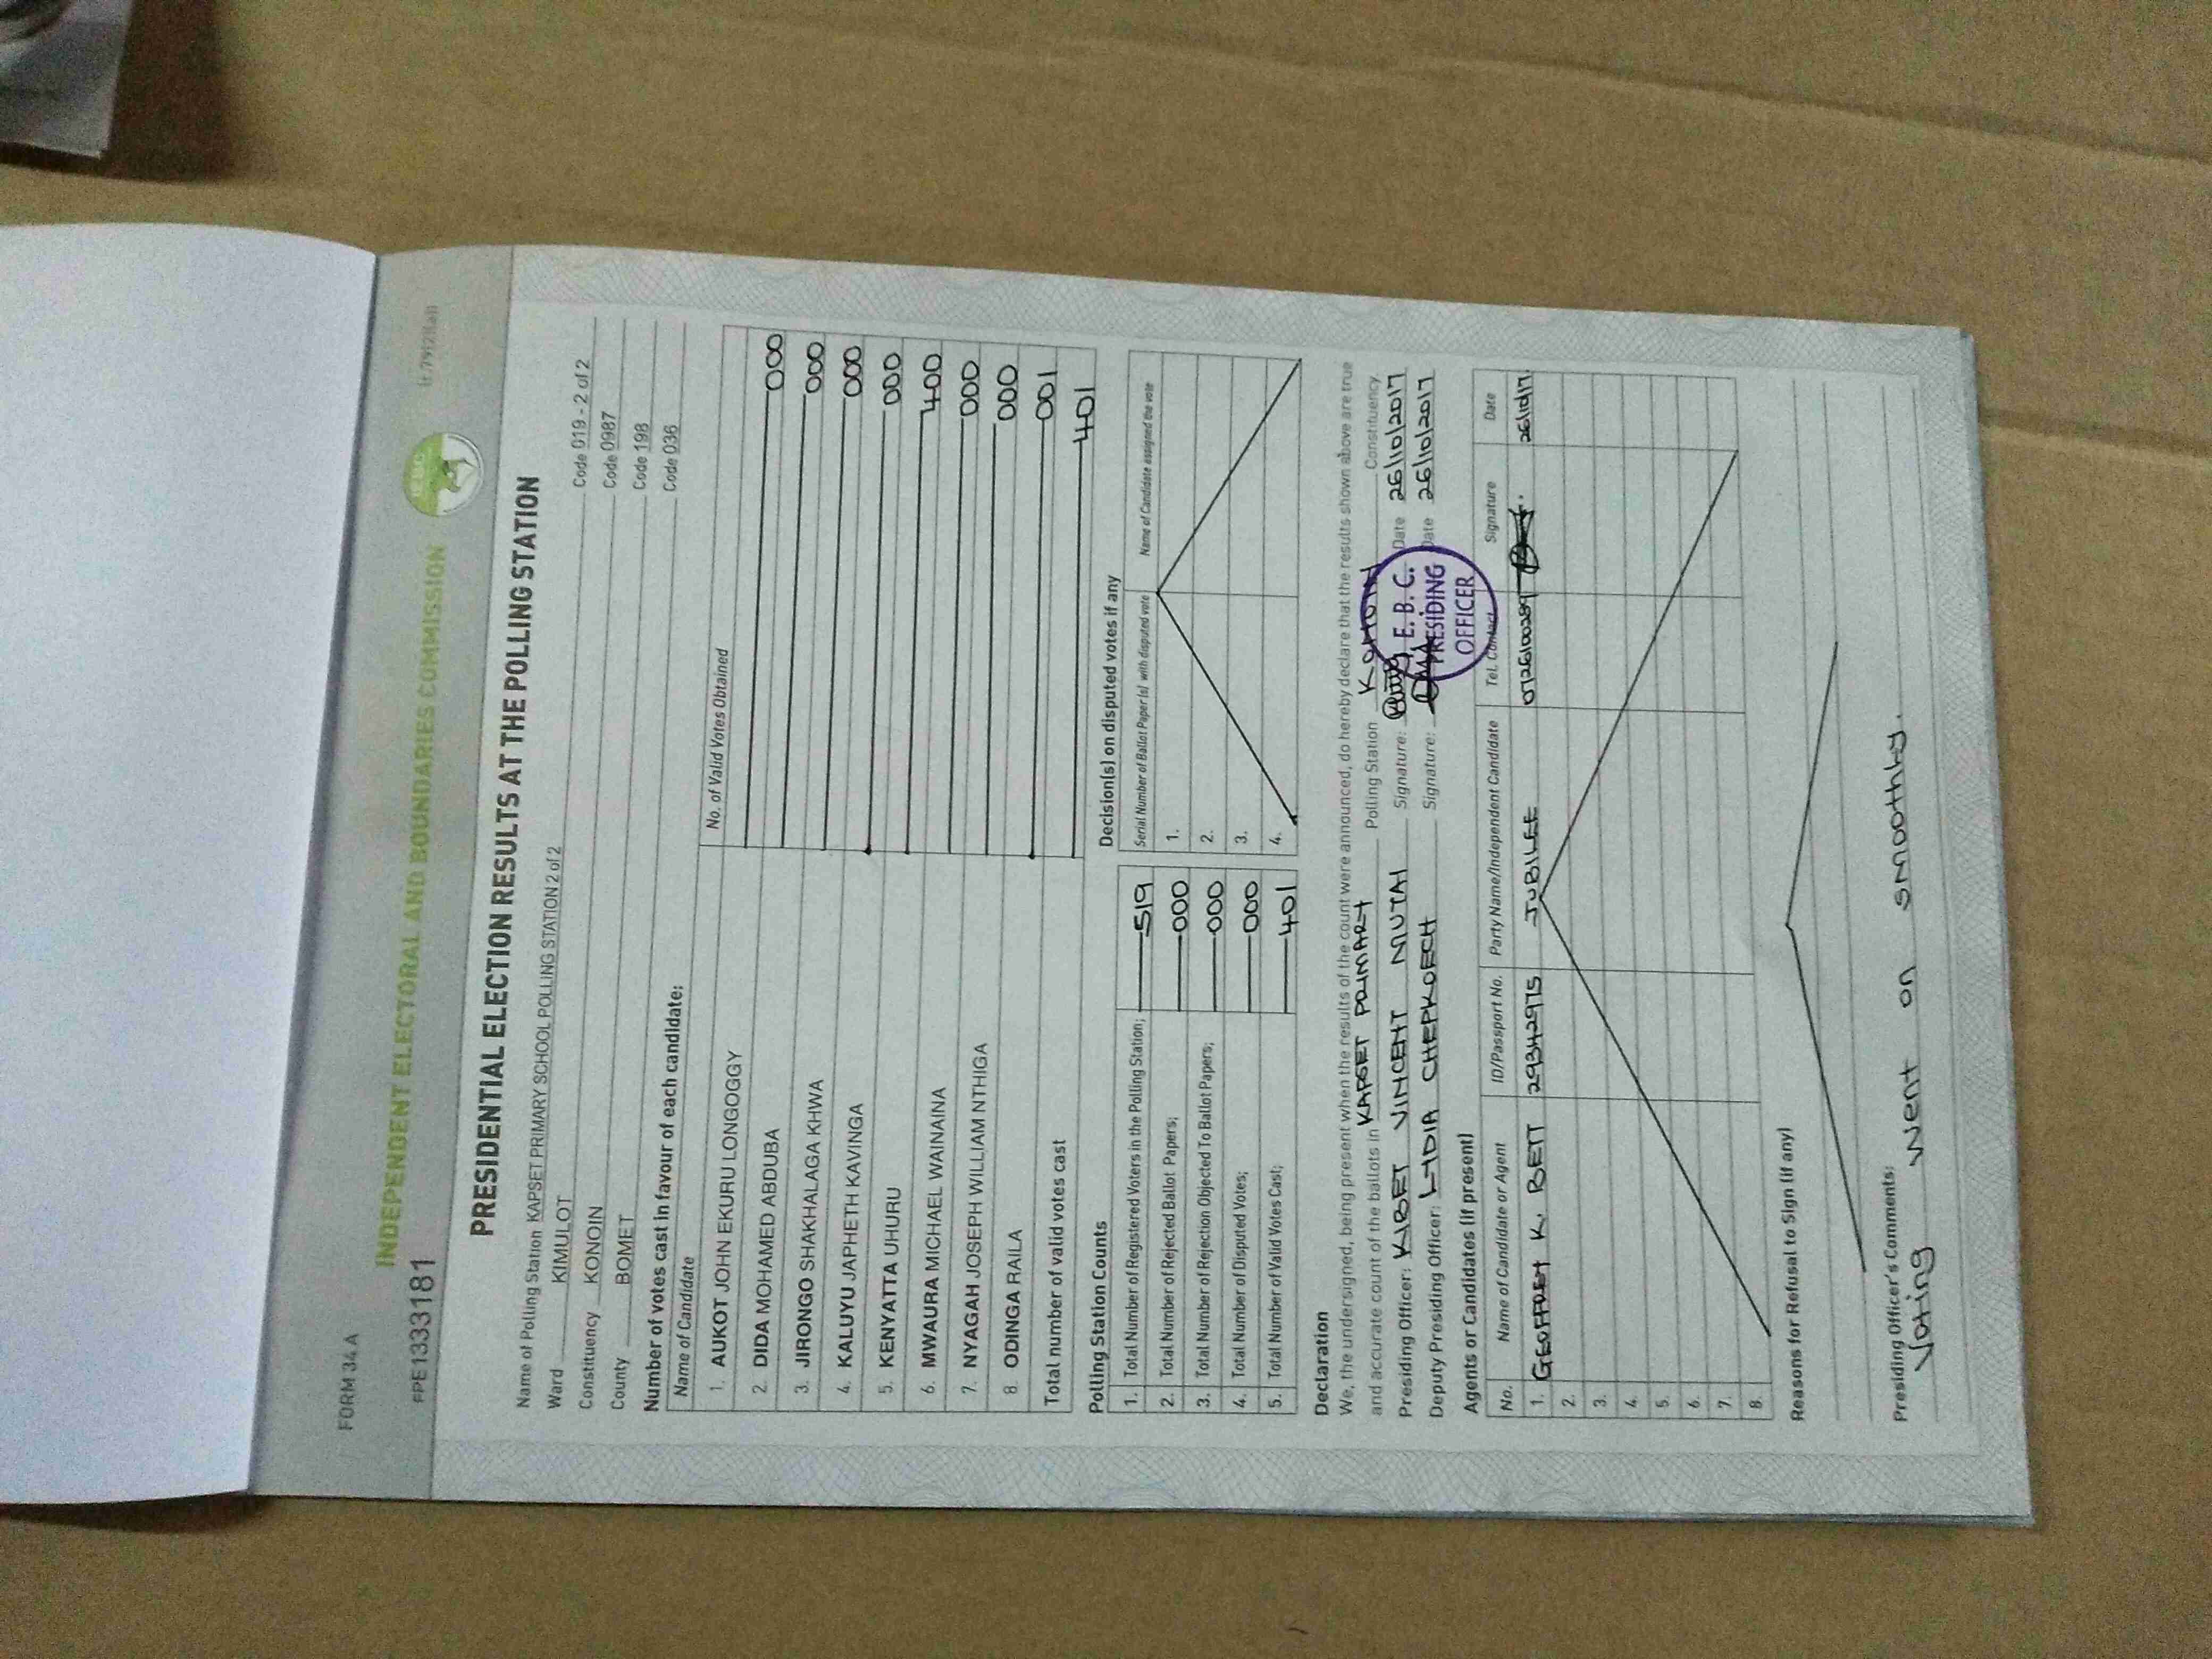 FORM 34 A
INDEPENDENT ELECTORAL AND BOUNDARIES COMMISSION
FPE1333181
PRESIDENTIAL ELECTION RESULTS AT THE POLLING STATION
Name of Polling Station KAPSET PRIMARY SCHOOL POLLING STATION 2 of 2 Code 019 - 2 of 2
Ward KIMULOT Code 0987
Constituency KONOIN Code 198
County BOMET Code 036
Number of votes cast in favour of each candidate:
Name of Candidate No. of Valid Votes Obtained
1. AUKOT JOHN EKURU LONGOGGY 000
2. DIDA MOHAMED ABDUBA 000
3. JIRONGO SHAKHALAGA KHWA 000
4. KALUYU JAPHETH KAVINGA 000
5. KENYATTA UHURU 400
6. MWAURA MICHAEL WAINAINA 000
7. NYAGAH JOSEPH WILLIAM NTHIGA 000
8. ODINGA RAILA 001
Total number of valid votes cast 401
Polling Station Counts
1. Total Number of Registered Voters in the Polling Station; 519
2. Total Number of Rejected Ballot Papers; 000
3. Total Number of Rejection Objected To Ballot Papers; 000
4. Total Number of Disputed Votes; 000
5. Total Number of Valid Votes Cast; 401
Decision(s) on disputed votes if any
Serial Number of Ballot Paper (s) with disputed vote Name of Candidate assigned the vote
1.
2.
3.
4.
Declaration
We, the undersigned, being present when the results of the count were announced, do hereby declare that the results shown above are true
and accurate count of the ballots in KAPSET PRIMARY Polling Station KONOIN Constituency
Presiding Officer: KIBET VINCENT MUTAI Signature: Date 26/10/2017
Deputy Presiding Officer: LYDIA CHEPKOECH Signature: Date 26/10/2017
I. E. B. C. PRESIDING OFFICER
Agents or Candidates (if present)
No. Name of Candidate or Agent ID/Passport No. Party Name/Independent Candidate Tel. Contact Signature Date
1. GEOFFREY K. BETT 29342975 JUBILEE 0726100289 26/10/17
2.
3.
4.
5.
6.
7.
8.
Reasons for Refusal to Sign (if any)
Presiding Officer's Comments:
Voting went on smoothly.